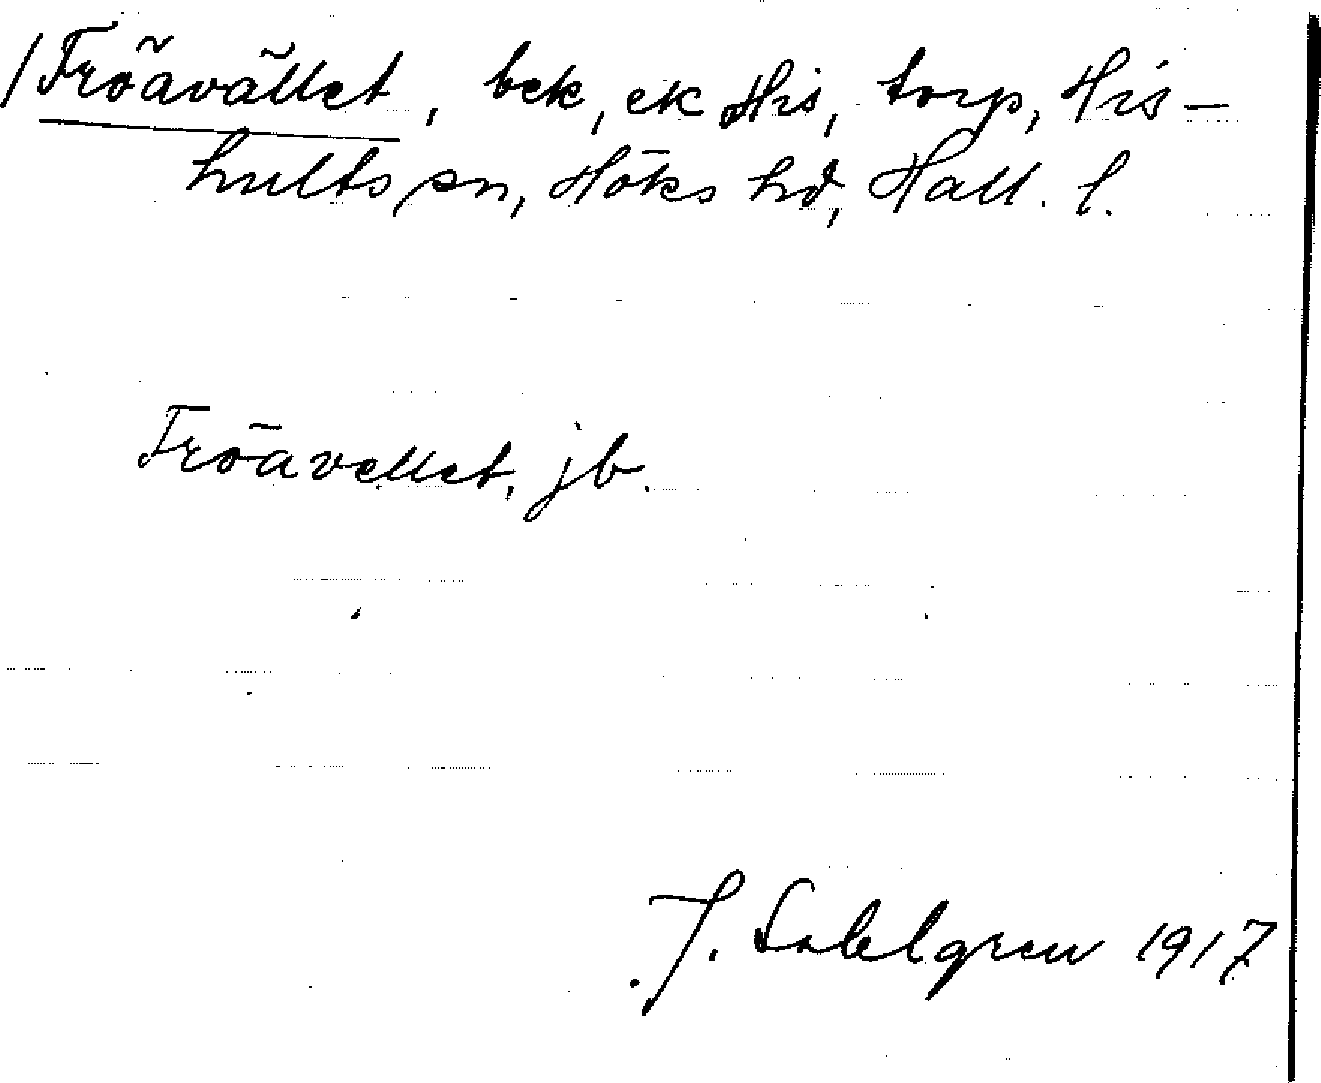 /Fröavället, bek, ek His, torp, His-
hults sn, Höks hd, Hall. l.
Fröavellet, jb.
J. Sahlgren 1917